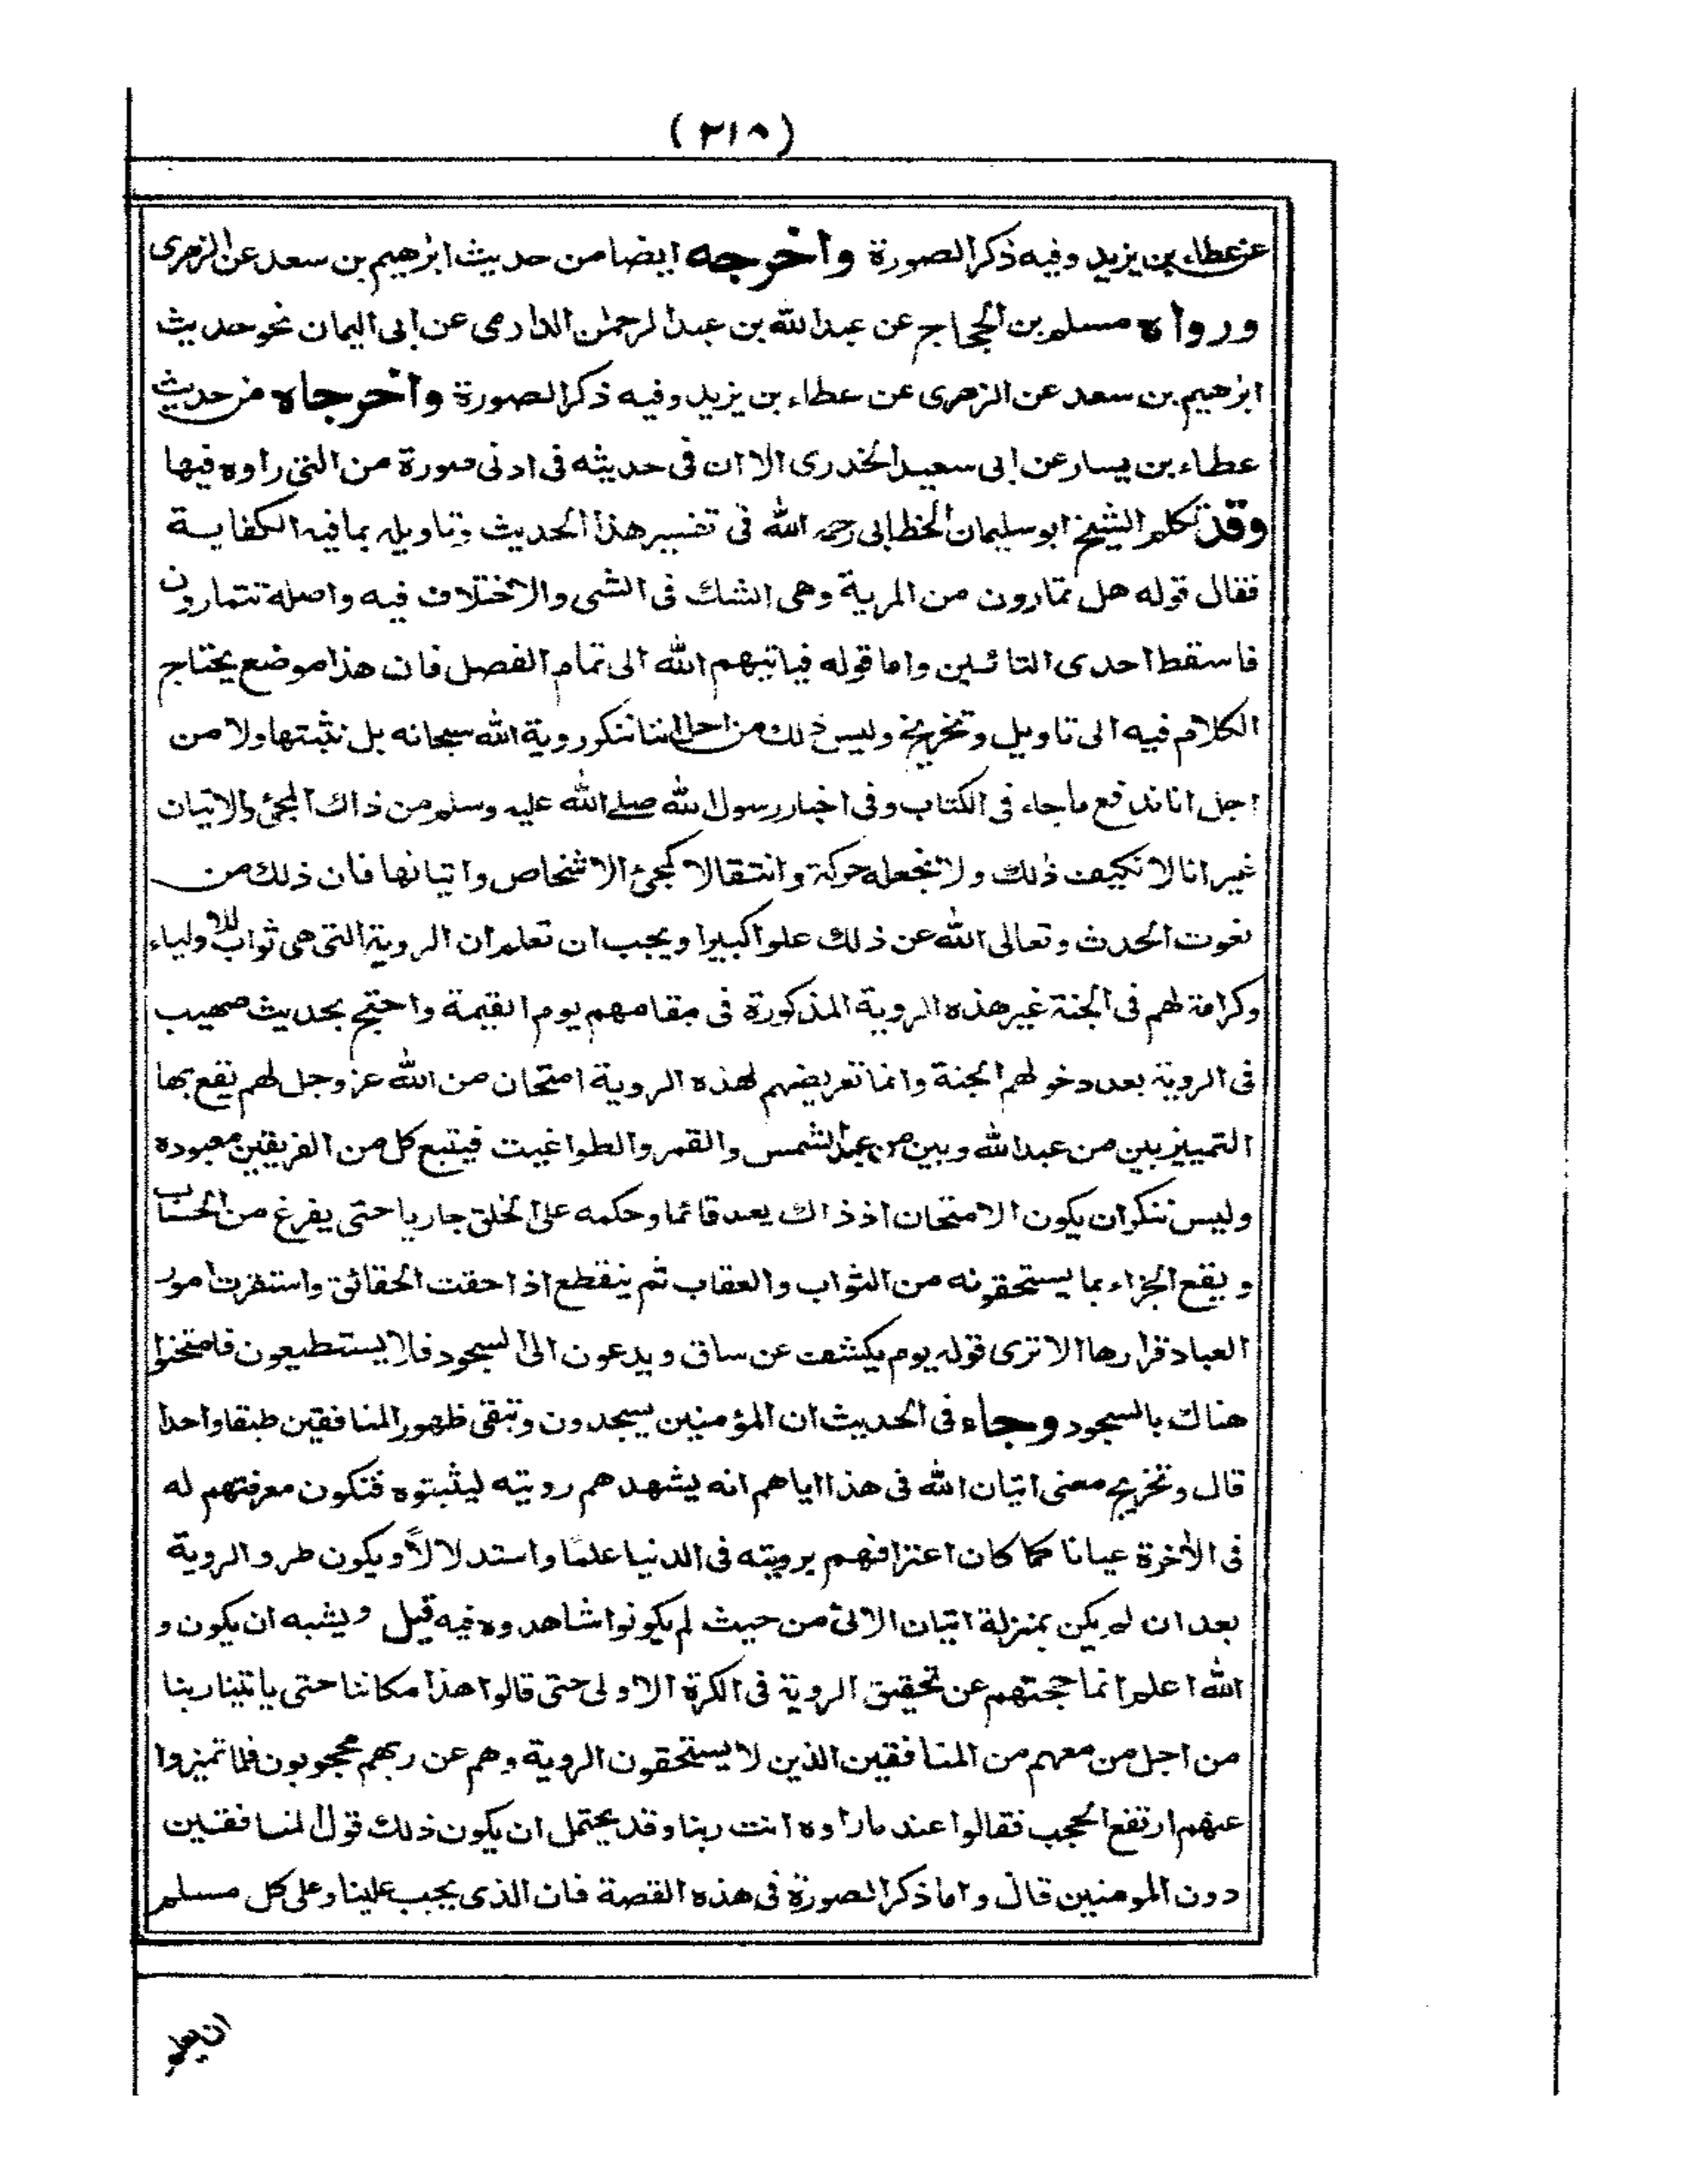 (٢١٨)
عن عطاء بن يزيد وفيه ذكر الصورة واخرجه ايضا من حديث ابرٰهيم بن سعد عن الزهرى
ورواه مسلم بن الحجاج عن عبد الله بن عبد الرحمٰن الدارمى عن ابى اليمان نحو حديث
ابرٰهيم بن سعد عن الزهرى عن عطاء بن يزيد وفيه ذكر الصورة واخرجاه من حديث
عطاء بن يسار عن ابى سعيد الخدرى الا ان فى حديثه فى ادنى صورة من التى راوه فيها
وقد تكلم الشيخ ابو سليمان الخطابى رحمه الله فى تفسير هذا الحديث وتاويله بما فيه الكفاية
فقال قوله هل تمارون من المرية وهى الشك فى الشى والاختلاف فيه واصله تتمارون
فاسقط احدى التائين واما قوله فياتيهم الله الى تمام الفصل فان هذا موضع يحتاج
الكلام فيه الى تاويل وتخريج وليس ذلك من اجل اننا ننكر روية الله سبحانه بل نثبتها ولا من
اجل انا ندفع ما جاء فى الكتاب وفى اخبار رسول الله صلے الله عليه وسلم من ذاك المجئ والاتيان
غير انا لا نكيف ذٰلك ولا نجعله حركة وانتقالا كمجئ الاشخاص واتيانها فان ذلك من
نعوت الحدث وتعالى الله عن ذلك علوا كبيرا ويجب ان تعلم ان الروية التى هى ثواب للاولياء
وكرامة لهم فى الجنة غير هذه الروية المذكورة فى مقامهم يوم القيمة واحتج بحديث صهيب
فى الروية بعد دخولهم الجنة وانما تعريضهم لهذه الروية امتحان من الله عز وجل لهم يقع بها
التمييز بين من عبد الله وبين من عبد الشمس والقمر والطواغيت فيتبع كل من الفريقين معبوده
وليس ننكر ان يكون الامتحان اذ ذاك يعد قائما وحكمه على الخلق جاريا حتى يفرغ من الحساب
ويقع الجزاء بما يستحقونه من الثواب والعقاب ثم ينقطع اذا حقت الحقائق واستقرت امور
العباد قرارها الا ترى قوله يوم يكشف عن ساق ويدعون الى السجود فلا يستطيعون فامتحنوا
هناك بالسجود وجاء فى الحديث ان المؤمنين يسجدون وتبقى ظهور المنافقين طبقا واحدا
قال وتخريج معنى اتيان الله فى هذا اياهم انه يشهدهم رويته ليثبتوه فتكون معرفتهم له
فى الاٰخرة عيانا كما كان اعترافهم برويته فى الدنيا علمًا واستدلالاً ويكون طرو الروية
بعد ان لم يكن بمنزلة اتيان الاتى من حيث لم يكونوا شاهدوه فيه قيل ويشبه ان يكون و
الله اعلم انما حجتهم عن تحقيق الروية فى الكرة الاولى حتى قالوا هذا مكاننا حتى ياتينا ربنا
من اجل من معهم من المنافقين الذين لا يستحقون الروية وهم عن ربهم محجوبون فلما تميزوا
عنهم ارتفع الحجب فقالوا عند ما راوه انت ربنا وقد يحتمل ان يكون ذلك قول المنافقين
دون المومنين قال واما ذكر الصورة فى هذه القصة فان الذى يجب علينا وعلى كل مسلم
ان يعلم